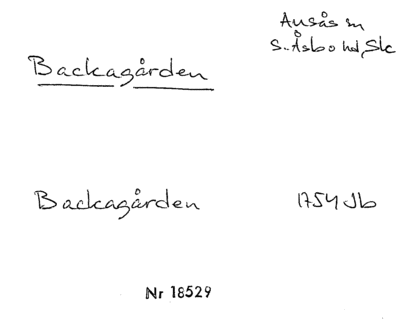 Backagården
Ausås sn
S. Åsbo hd, Skc
Backagården
1754 Jb
Nr 18529